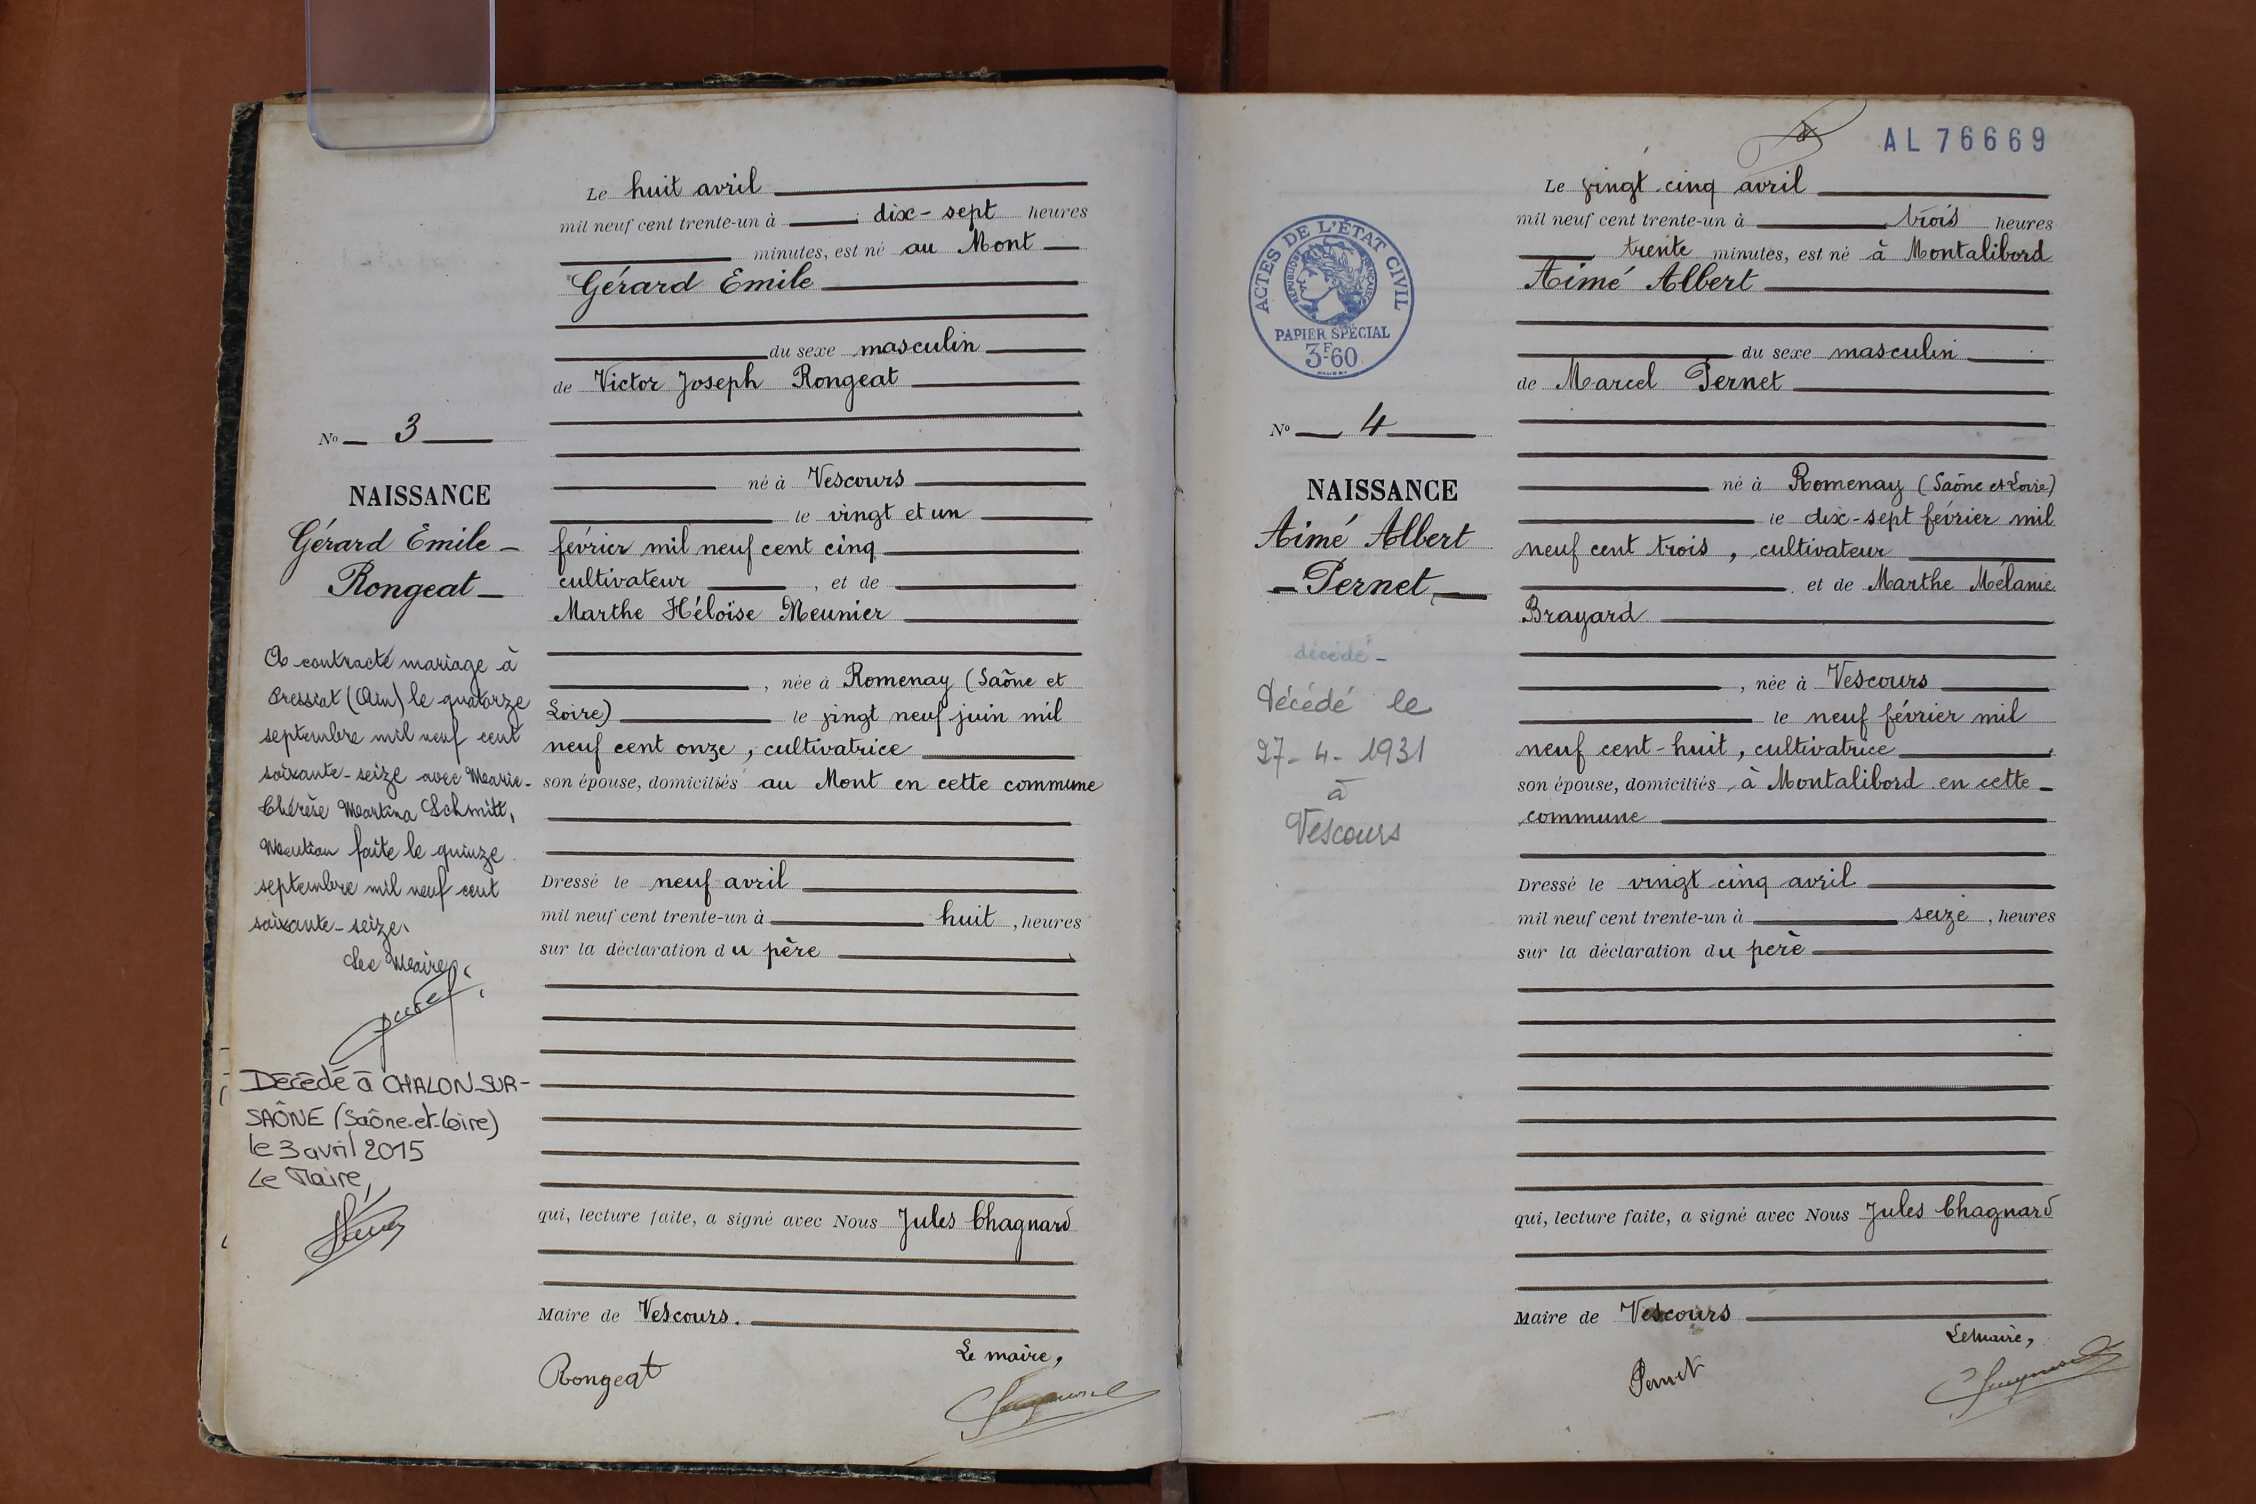 Le huit avril
mil neuf cent trente-un à dix-sept heures
minutes, est né au Mont
Gérard Emile
du sexe masculin
de Victor Joseph Rongeat
No 3
né à Vescours
NAISSANCE
le vingt et un
Gérard Emile
février mil neuf cent cinq
Rongeat
cultivateur , et de
Marthe Héloïse Meunier
A contracté mariage à
Pressiat (Ain) le quatorze
septembre mil neuf cent
soixante-seize avec Marie-
Thérèse Martina Schmitt,
Mention faite le quinze
septembre mil neuf cent
soixante-seize.
Le Maire,
Décédé à CHALON-SUR-
SAÔNE (Saône-et-Loire)
le 3 avril 2015
Le Maire,
, née à Romenay (Saône et
Loire) le vingt neuf juin mil
neuf cent onze, cultivatrice
son épouse, domiciliés au Mont en cette commune
Dressé le neuf avril
mil neuf cent trente-un à huit , heures
sur la déclaration du père
qui, lecture faite, a signé avec Nous Jules Chagnard
Maire de Vescours.
Le maire,
Rongeat
AL 76669
Le vingt-cinq avril
mil neuf cent trente-un à trois heures
trente minutes, est né à Montalibord
Aimé Albert
ACTES DE L'ÉTAT CIVIL
RÉPUBLIQUE FRANÇAISE
PAPIER SPÉCIAL
3F60
du sexe masculin
de Marcel Pernet
No 4
né à Romenay (Saône et Loire)
NAISSANCE
le dix-sept février mil
Aimé Albert
neuf cent trois, cultivateur
Pernet
et de Marthe Mélanie
Brayard
décédé
Décédé le
27-4-1931
à
Vescours
, née à Vescours
le neuf février mil
neuf cent-huit, cultivatrice
son épouse, domiciliés à Montalibord en cette
commune
Dressé le vingt cinq avril
mil neuf cent trente-un à seize , heures
sur la déclaration du père
qui, lecture faite, a signé avec Nous Jules Chagnard
Maire de Vescours
Le maire,
Pernet